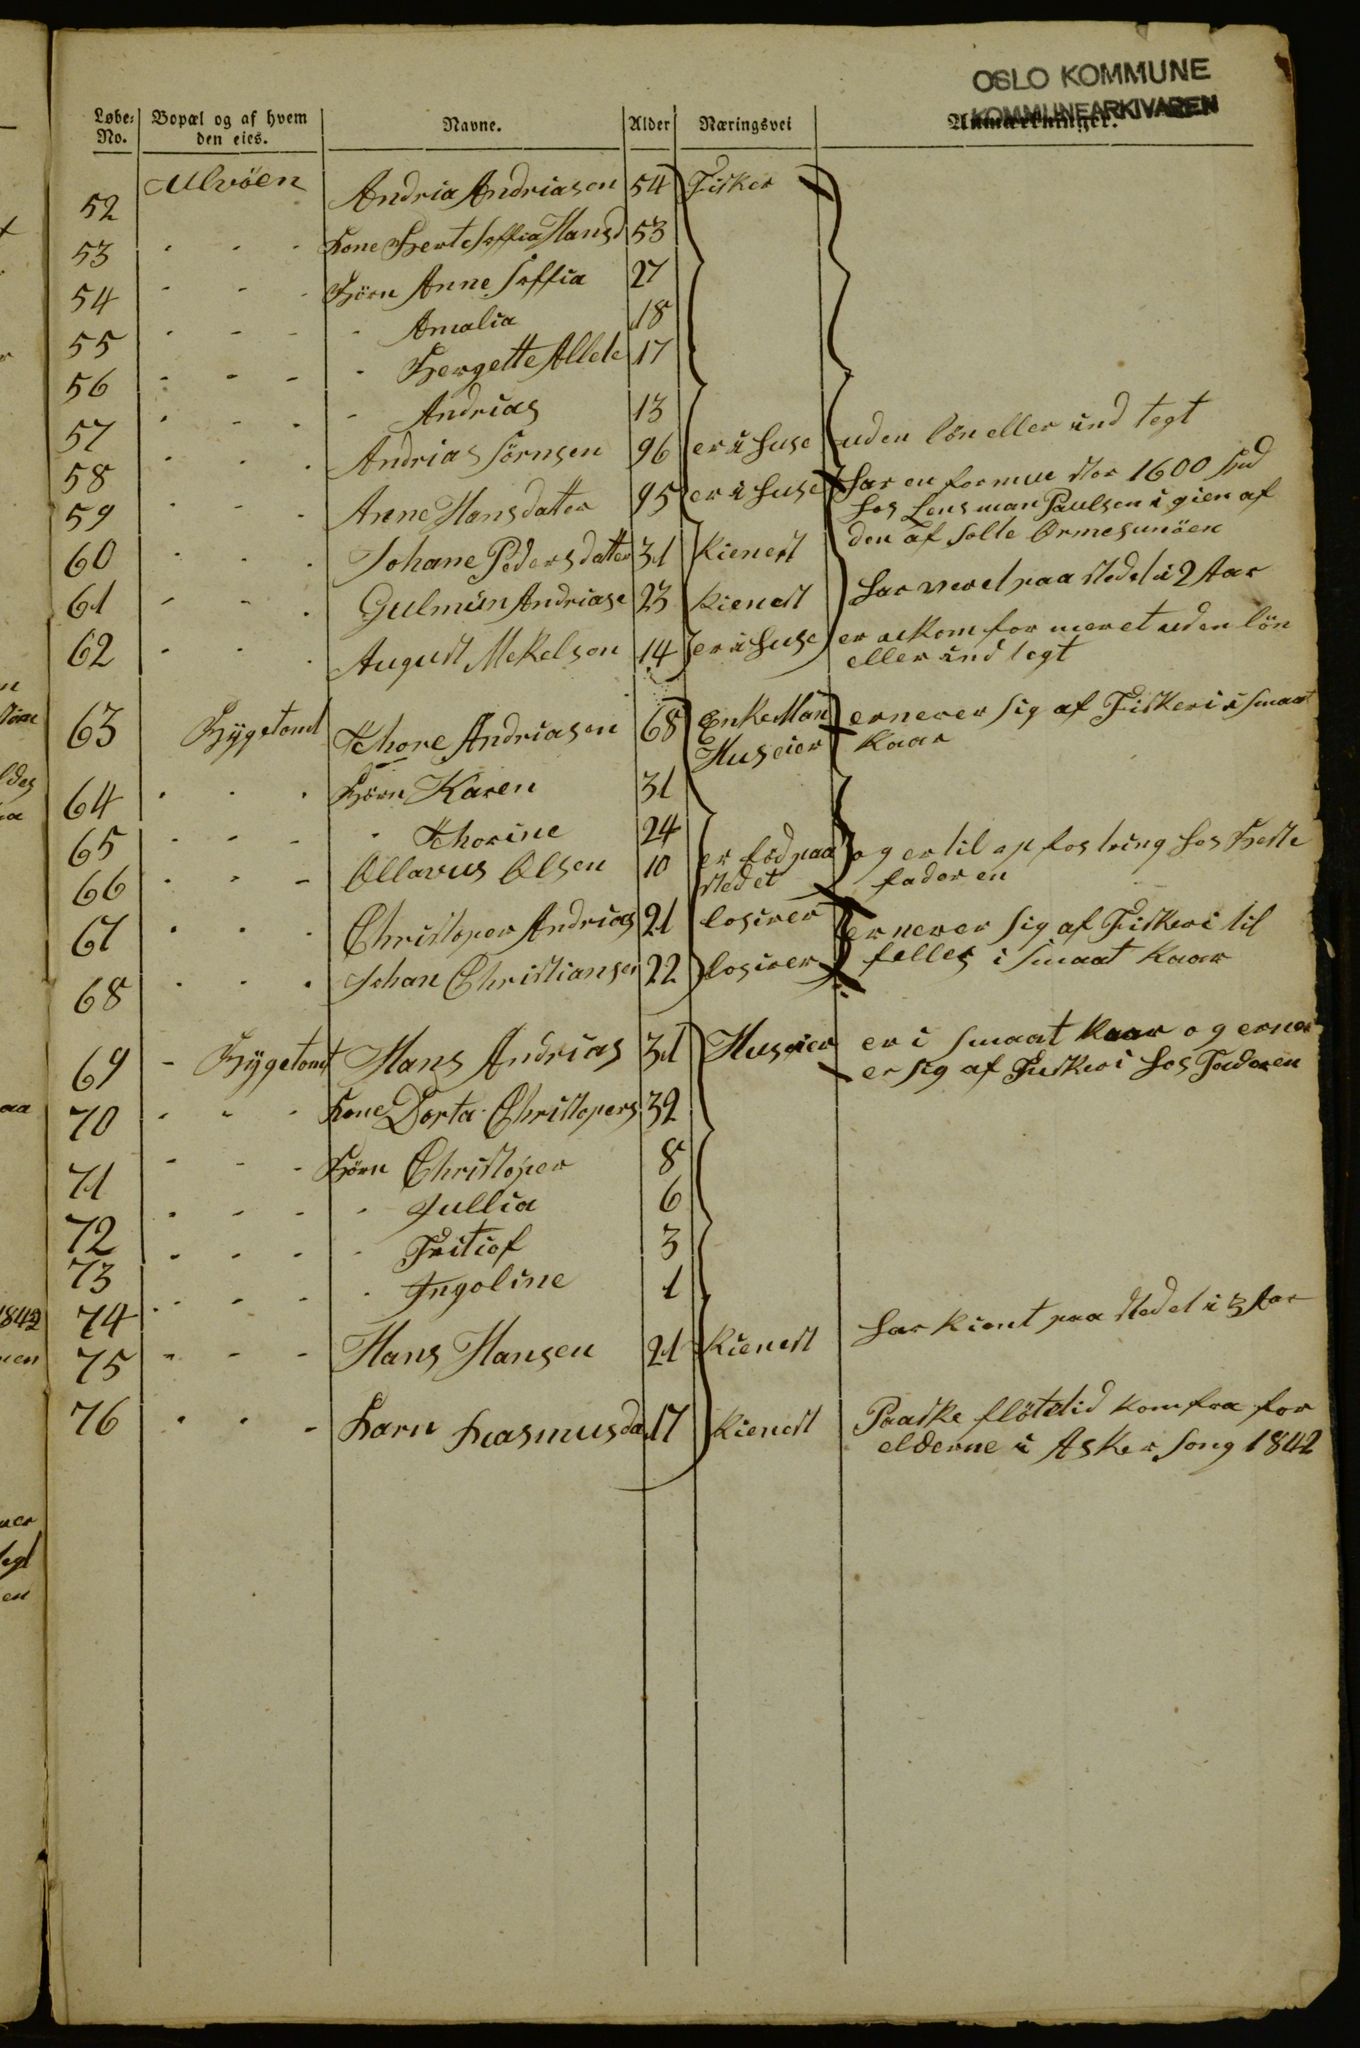 OSLO KOMMUNE
KOMMUNEARKIVAREN
Løbe-No. Bopæl og af hvem den eies. Navne. Alder Næringsvei Anmærkninger.
52 Ulvöen Andria Andriasen 54 Fisker
53 - - - Kone Berte Soffia Hansd 53
54 - - - Börn Anne Soffia 27
55 - - - - Amalia 18
56 - - - - Bergette Allete 17
57 - - - - Andrias 13
58 - - - Andrias Sörnsen 96 er i huse uden lön eller ind tegt
59 - - - Anne Hansdatter 95 er i huse har en formue stor 1600 Spd
hos Lensman Paulsen i gien af
den af solte Ormesunöen
60 - - - Johane Pedersdatter 31 tienest
61 - - - Gulmün Andriase 23 tienest har veret paa stedet i 2 Aar
62 - - - August Mekelsen 14 er i huse er ukomformeret uden lön
eller ind tegt
63 Bygetomt Thore Andriasen 68 Enke Man ernerer sig af Fiskeri i smaat
Huseier kaar
64 - - - Börn Karen 31
65 - - - - Thorine 24
66 - - - Ollavus Olsen 10 er fød paa og er til opfostring hos Beste
stedet faderen
67 - - - Christoper Andrias 21 losirer ernerer sig af Fiskeri til
68 - - - Johan Christiansen 22 losirer felles i smaat kaar
69 - Bygetomt Hans Andrias 31 Huseier er i smaat kaar og erner
er sig af Fiskeri hos Faderen
70 - - - Kone Dorta Christopers 32
71 - - - Börn Christoper 8
72 - - - - Jullia 6
73 - - - - Fritiof 3
74 - - - - Ingoline 1
75 - - - Hans Hansen 21 tienest har tient paa stedet i 3 Aar
76 - - - Karn Rasmusda 17 tienest Paaske flötetid kom fra for
elderne i Asker Song 1842